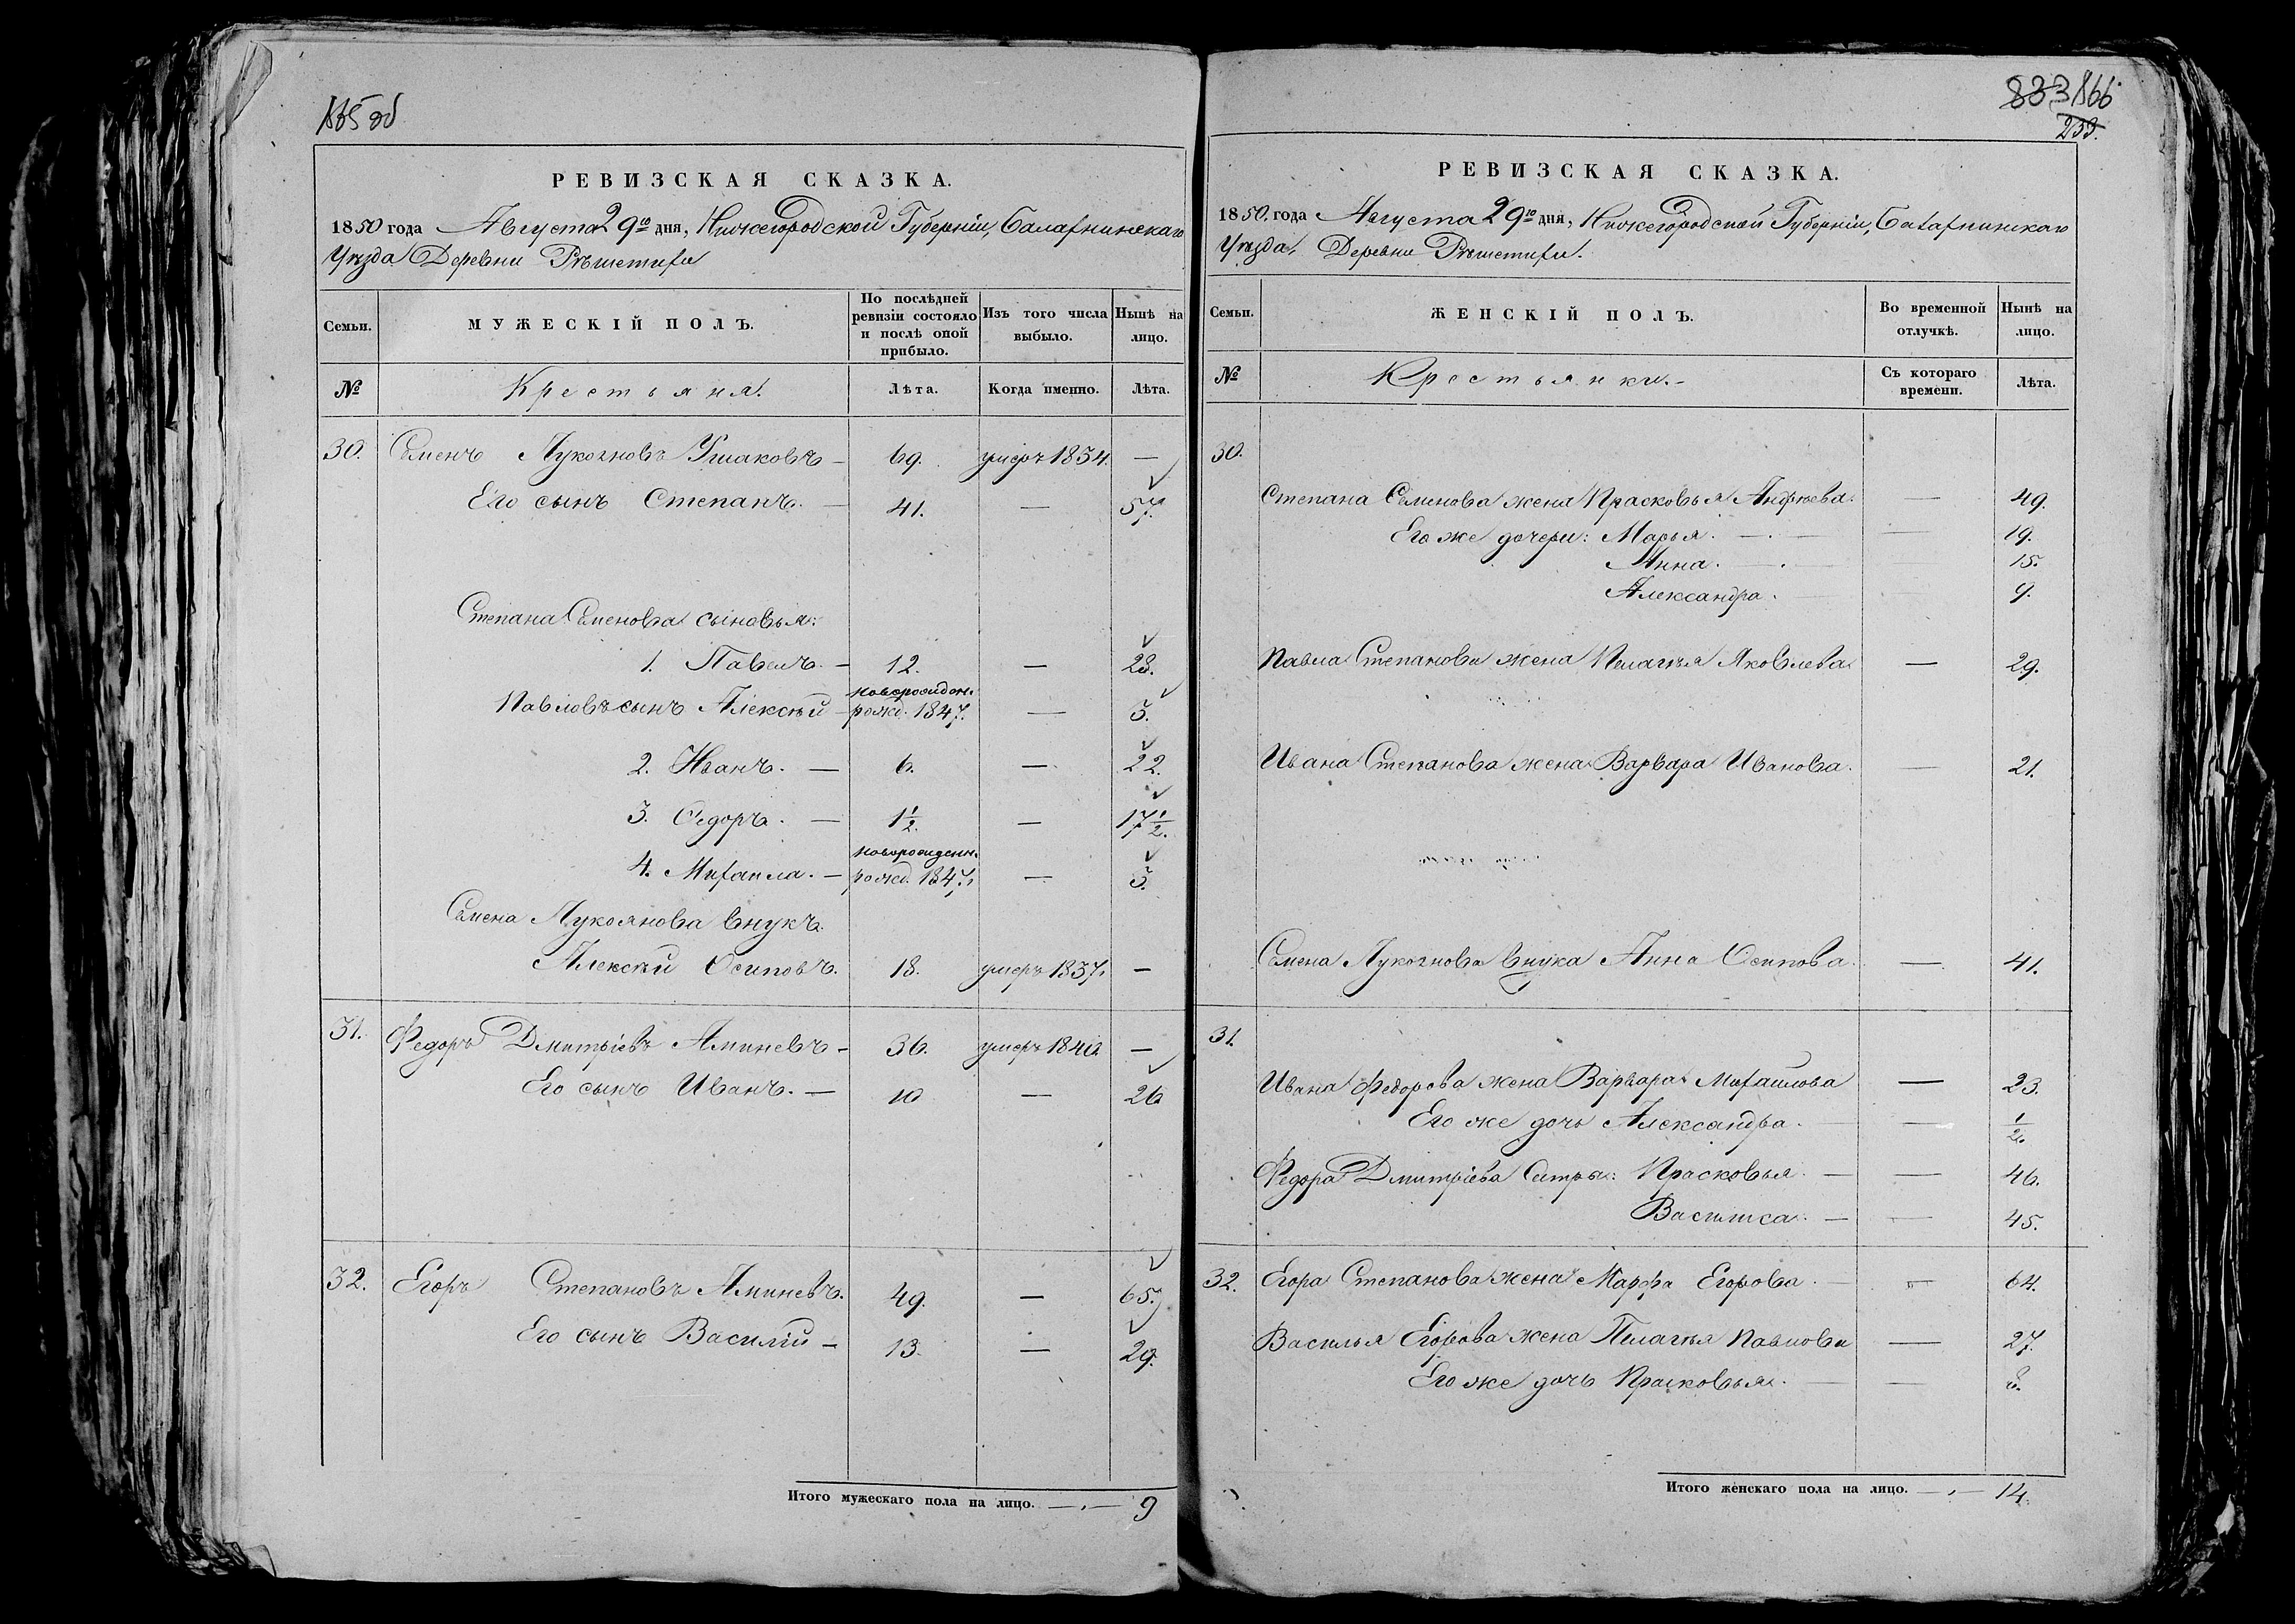 865 об
РЕВИЗСКАЯ СКАЗКА.
1850 года Августа 29го дня, Нижегородской Губерніи, Балахнинскаго
Уѣзда Деревни Рѣшетихи
Семьи.
МУЖЕСКІЙ ПОЛЪ.
По послѣдней ревизіи состояло и послѣ оной прибыло.
Изъ того числа выбыло.
Нынѣ на лицо.
№
Крестьяня.
Лѣта.
Когда именно.
Лѣта.
30. Семенъ Лукояновъ Ушаковъ — 69. умеръ 1834. —
Его сынъ Степанъ. — 41. — 57.
Степана Семенова сыновья:
1. Павелъ. — 12. — 28.
новорожден.
Павловъ сынъ Алексѣй — рожд. 1847. — 3.
2. Иванъ. — 6. — 22.
3. Ѳедоръ. — 1 1/2. — 17 1/2.
новорожденн.
4. Михаила. — рожд. 1847. — 3.
Семена Лукоянова внукъ
Алексѣй Осиповъ. 18. умеръ 1837. —
31. Федоръ Дмитріевъ Аминевъ — 36. умеръ 1840. —
Его сынъ Иванъ. — 10 — 26
32. Егоръ Степановъ Аминевъ. 49. — 65.
Его сынъ Василій — 13. — 29.
Итого мужескаго пола на лицо. — 9
833 866
239.
РЕВИЗСКАЯ СКАЗКА.
1850. года Августа 29го дня, Нижегородской Губерніи, Балахнинскаго
Уѣзда, Деревни Рѣшетихи.
Семьи.
ЖЕНСКІЙ ПОЛЪ.
Во временной отлучкѣ.
Нынѣ на лицо.
№
Крестьянки. —
Съ котораго времени.
Лѣта.
30.
Степана Семенова жена Прасковья Андреева. — 49.
Его же дочери: Марья. — — 19.
Анна. — 15.
Александра. — 9.
Павла Степанова жена Пелагѣя Яковлева — 29.
Ивана Степанова жена Варвара Иванова. — 21.
Семена Лукоянова внука Анна Осипова. — 41.
31.
Ивана Федорова жена Варвара Михайлова — 23.
Его же дочь Александра. — 1/2.
Федора Дмитріева Сетры: Прасковья. — — 46.
Василиса. — — 45.
32. Егора Степанова жена Марфа Егорова. — 64.
Василья Егорова жена Пелагѣя Павлова — 27.
Его же дочь Прасковья. — —
Итого женскаго пола на лицо. — 14.